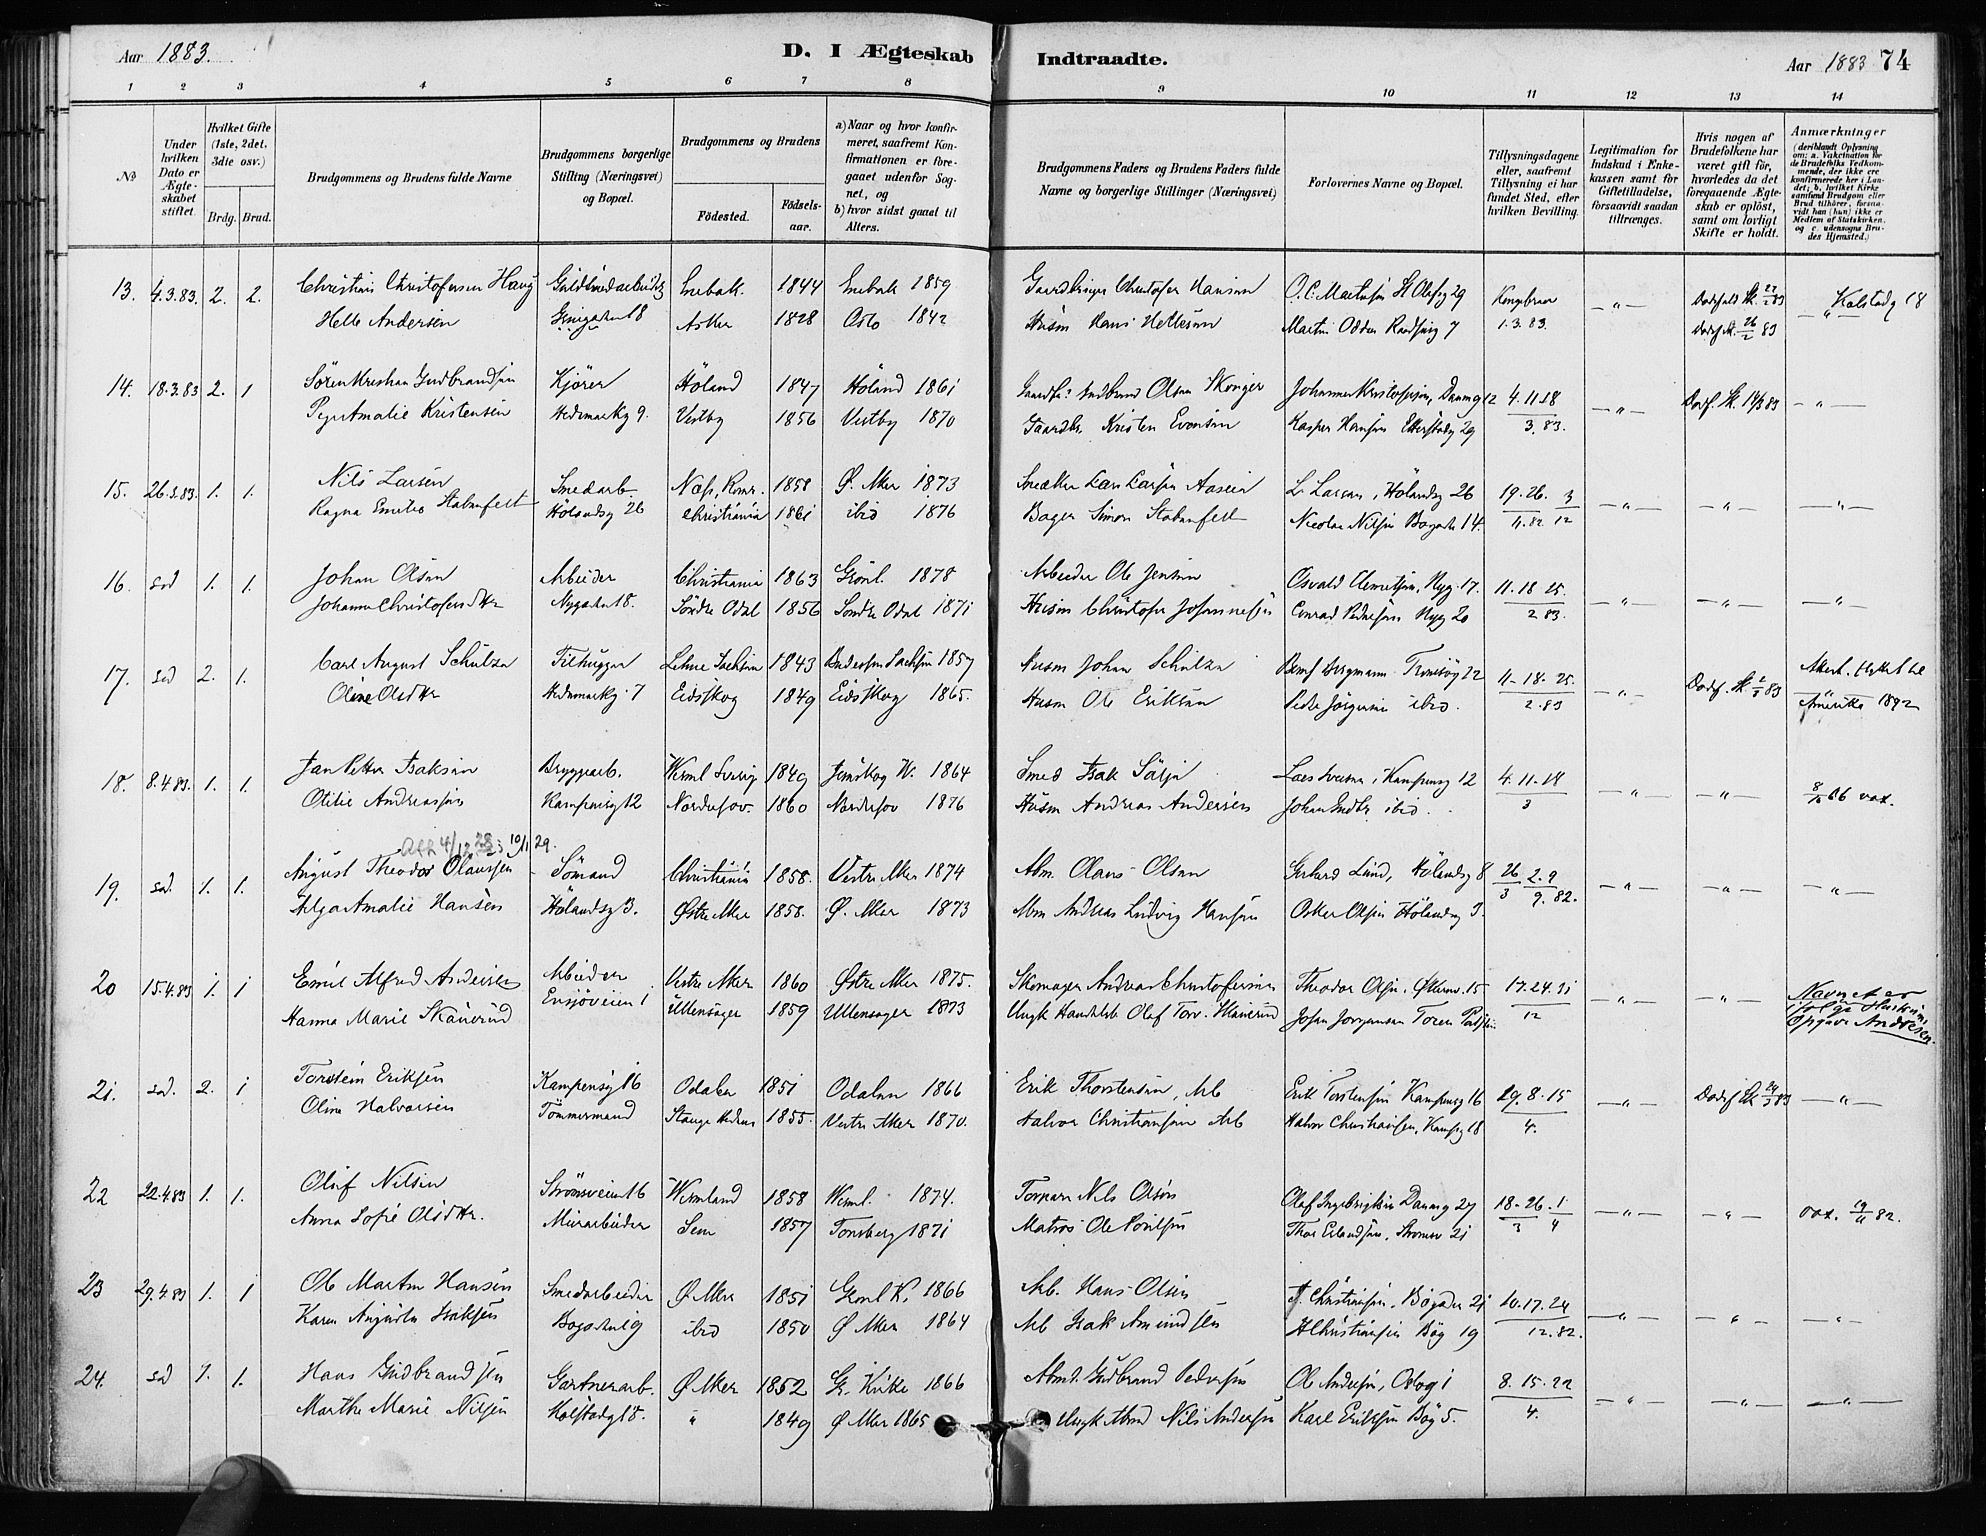 Aar 1883. D. I Ægteskab Indtraadte. Aar 1883 74
1 2 3 4 5 6 7 8 9 10 11 12 13 14
№
Under hvilken Dato er Ægteskabet stiftet.
Hvilket Gifte (1ste, 2det, 3die osv.)
Brdg. Brud.
Brudgommens og Brudens fulde Navne
Brudgommens borgerlige Stilling (Næringsvei) og Bopæl.
Brudgommens og Brudens
Fødested. Fødselsaar.
a) Naar og hvor konfirmeret, saafremt Konfirmationen er foregaaet udenfor Sognet, og
b) hvor sidst gaaet til Alters.
Brudgommens Faders og Brudens Faders fulde Navne og borgerlige Stillinger (Næringsvei)
Forlovernes Navne og Bopæl.
Tillysningsdagene eller, saafremt Tillysning ei har fundet Sted, efter hvilken Bevilling.
Legitimation for Indskud i Enkekassen samt for Giftetilladelse, forsaavidt saadan tiltrænges.
Hvis nogen af Brudefolkene har været gift før, hvorledes da det foregaaende Ægteskab er opløst, samt om lovligt Skifte er holdt.
Anmærkninger (deriblandt Oplysning om: a. Vakcination for de Brudefolks Vedkommende, der ikke ere konfirmerede her i Landet; b. hvilket Kirkesamfund Brudgom eller Brud tilhører, forsaavidt han (hun) ikke er Medlem af Statskirken, og c. udensogns Brudes Hjemsted.)
13. 4.3.83. 2. 2. Christian Christofersen Haug Guldsmedarbeider Enebak 1844 Enebak 1859 Gaardbruger Christofer Hansen O.C. Martinsen St Olafsg 29 Kongebrev — " — Kolstadg 18
Helle Andersen 18 Asker 1828 Oslo 1842 Husm Hans Martin Odden 7 1.3.83.
14. 18.3.83 2. 1 Sören Kristian Gudbrandsen Kjörer Höland 1847 Höland 1861 Gudbrand Olsen Johannes Kristofersen, Danmg 12 4.11.18 — " — — " —
Amalie Kristensen Hedemarksg 9. Vestby 1856 Vestby 1870 Gaardbr Kristen Evensen Kasper Hansen Etterstadg 29 3.83.
15. 26.3.83. 1. 1. Nils Larsen Smedarb. Næs, Rom. 1858 Ø. Aker 1873 Snedker Lars Larsen L. Larsen, Hölandsg 26 19.26. 3 — " — — " — — " —
Ragna Emilie Stabenfelt Hölandsg 26 Christiania 1861 ibid 1876 Bager Simon Stabenfelt Nicolai Nilsen Bögate 14. 11.82 12
16. sad 1. 1. Johan Olsen Arbeider Christiania 1863 Grönl. 1878 Arbeider Ole Jensen Osvald Clemetsen, Nyg. 17. 11.18 25. — " — — " — — " —
Johanne Christofersdtr Nygaden 18. Söndre Odal 1856 Söndre Odal 1871 Husm Christofer Johannesen Conrad Pedersen Nyg 20 2 83.
17. sad 2. 1. Carl August Schulze Filhugger Sachsen 1843 Sachsen 1857 Husm Johan Schulze Bergmann Tromsög 22 11-18-25 — " —
Oline Olsdtr Hedemarksg. 7 Eidsskog 1849 Eidsskog 1865. Husm Ole Eriksen Peder Jörgensen ibid. 2.83 Amerika 1892
18. 8.4.83. 1. 1. Jan Petter Isaksen Bryggearb. Verml Sverig 1849 W. 1864 Smed Isak Lars Iversen, Kampensg 12 4.11.18 — " — — " — vax.
Otilie Andreassen Kampensg 12 Nordrehov. 1860 Nordrehov 1876 Husm Andreas Andersen Johan ibid. 3
19. sad. 1. 1. August Theodor Olaussen Sömand Christiania 1858. Vestre Aker 1874 Arb. Olaus Olsen Gerhard Lund, Hölandsg 8 26 2.9 — " — — " — — " —
Helga Amalie Hansen Hölandsg 3. Østre Aker 1858. Ø. Aker 1873 Arb. Andreas Ludvig Hansen Oskar Olsen Hölandsg 3. 3 9.82.
20 15.4.83 1. 1 Emil Alfred Andersen Arbeider Vestre Aker 1860 Østre Aker 1875. Skomager Andreas Christofersen Theodor Olsen, 15 17.24.31 — " — — " — Navnet er
Hanna Marie Skánerud Ensjöveien 1 Ullensager 1859 Ullensager 1873 Ungk Olaf Torv. Skánerud Johan Jörgensen 12 ifölge Opgave Andresen.
21. sad. 2. 1 Torstein Eriksen Kampensg 16 Odalen 1851 Odalen 1866 Erik Thorstensen, Arb Erik Torstensen Kampensg 16 29.8.15 — " — — " —
Oline Halvorsen Tömmermand Stange Hedem 1855. Vestre Aker 1870. Halvor Christiansen Arb Halvor Christiansen, Kampg 18 4.
22 22.4.83 1. 1. Oluf Nilsen Strömsveien 16 Vermland 1858 Verml. 1874. Torpare Nils Olsen Olaf Ingebrigtsen Danmg 27 18-26.1 — " — — " — vax. 82.
Anna Sofie Olsdtr. Murarbeider Sem 1857 Tonsberg 1871 Matros Ole Poulsen Thor Erlandsen, Strömsv 21 3 4
23 29.4.83 1. 1 Ole Martin Hansen Smedarbeider Ø Aker 1851 Grönl K. 1866 Arb. Hans Olsen Christiansen, Bögaden 21 10.17.24 — " — — " — — " —
Karen Augusta Isaksen Bögaden 19 ibid 1850 Ø Aker 1864 Arb Isak Amundsen H Christiansen Bög 19 12.82.
24. sad 1. 1. Hans Gudbrandsen Gartnerarb. Ø Aker 1852 Gr. Kirke 1866 Arbm. Gudbrand Pedersen Ole Andersen, Oslog 1 8.15.22 — " — — " — — " —
Marthe Marie Nilsen Kolstadg 18. " 1849 Ø Aker 1865 Ungk Nils Andersen Karl Eriksen Bög 5. 4.